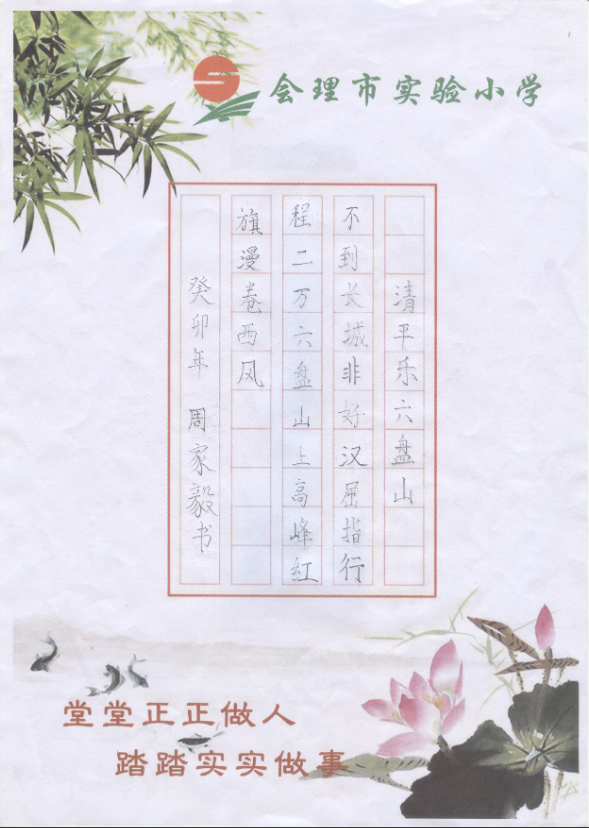 会理市实验小学
清平乐六盘山
不到长城非好汉屈指行
程二万六盘山上高峰红
旗漫卷西风
癸卯年 周家毅书
堂堂正正做人
踏踏实实做事